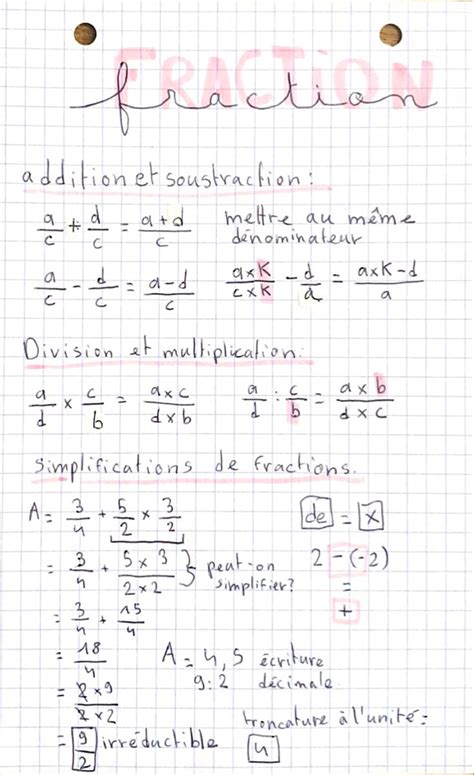 FRACTION
fraction
addition et soustraction :
a/c + d/c = a+d/c mettre au même dénominateur
a/c - d/c = a-d/c a×K/c×K - d/a = a×K-d/a
Division et multiplication:
a/d × c/b = a×c/d×b a/d : c/b = a×b/d×c
simplifications de fractions.
A = 3/4 + 5/2 × 3/2 de = ×
= 3/4 + 5×3/2×2 } peut-on simplifier? 2-(-2)
=
+
= 3/4 + 15/4
= 18/4 A = 4,5 écriture décimale
9:2
= 2×9/2×2
troncature à l'unité :
= 9/2 irréductible 4